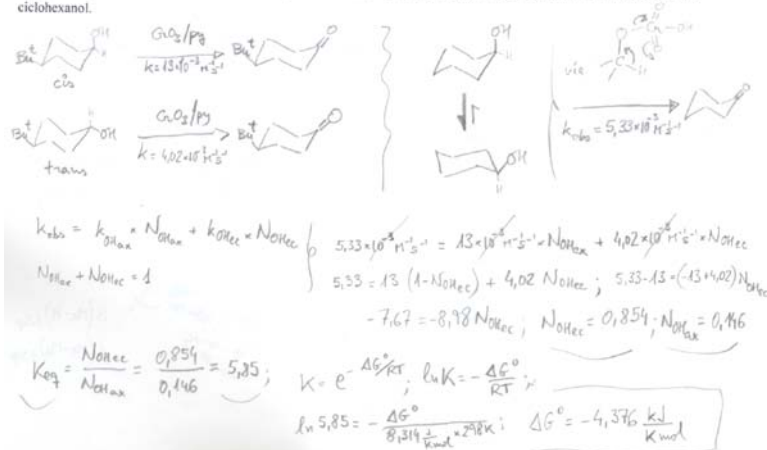 ciclohexanol.
OH
Bu^t
H
cis
CrO3/py
k=13×10^-3 M^-1 s^-1
Bu^t
O
H
Bu^t
OH
trans
CrO3/py
k=4,02×10^-3 M^-1 s^-1
Bu^t
O
OH
H
OH
H
via
O
O
Cr
OH
O
C
H
k_obs = 5,33×10^-3 M^-1 s^-1
O
k_obs = k_OHax × N_OHax + k_OHec × N_OHec
N_OHax + N_OHec = 1
5,33×10^-3 M^-1 s^-1 = 13×10^-3 M^-1 s^-1 × N_OHax + 4,02×10^-3 M^-1 s^-1 × N_OHec
5,33 = 13 (1-N_OHec) + 4,02 N_OHec ; 5,33-13 = (-13+4,02) N_OHec
-7,67 = -8,98 N_OHec ; N_OHec = 0,854 ; N_OHax = 0,146
K_eq = N_OHec / N_OHax = 0,854 / 0,146 = 5,85 ;
K = e^-ΔG°/RT ; ln K = - ΔG° / RT ;
ln 5,85 = - ΔG° / 8,314 J/Kmol × 298K ; ΔG° = -4,376 kJ / Kmol